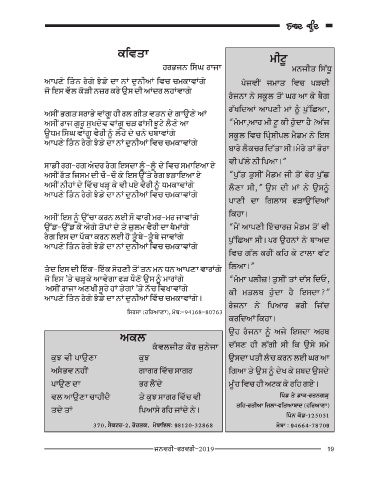 ਕਵਿਤਾ
ਹਰਭਜਨ ਸਿੰਘ ਰਾਜਾ
ਆਪਣੇ ਤਿੰਨ ਰੰਗੇ ਝੰਡੇ ਦਾ ਨਾਂ ਦੁਨੀਆਂ ਵਿਚ ਚਮਕਾਵਾਂਗੇ
ਜੋ ਇਸ ਵੱਲ ਕੌੜੀ ਨਜ਼ਰ ਕਰੇ ਉਸ ਦੀ ਆਂਦਰ ਲਹਾਂਵਾਂਗੇ
ਅਸੀਂ ਭਗਤ ਸਰਾਭੇ ਵਾਂਗੂ ਹੀ ਰਲ ਗੀਤ ਵਤਨ ਦੇ ਗਾਉਣੇ ਆਂ
ਅਸੀਂ ਰਾਜ ਗੁਰੂ ਸੁਖਦੇਵ ਵਾਂਗੂ ਚੜ ਫਾਂਸੀ ਝੂਟੇ ਲੈਣੇ ਆਂ
ਊਧਮ ਸਿੰਘ ਵਾਂਗੂ ਵੈਰੀ ਨੂੰ ਲੋਹੇ ਦੇ ਚਨੇ ਚਬਾਵਾਂਗੇ
ਆਪਣੇ ਤਿੰਨ ਰੰਗੇ ਝੰਡੇ ਦਾ ਨਾਂ ਦੁਨੀਆਂ ਵਿਚ ਚਮਕਾਵਾਂਗੇ
ਸਾਡੀ ਰਗ-ਰਗ ਅੰਦਰ ਰੰਗ ਇਸਦਾ ਲੂੰ-ਲੂੰ ਦੇ ਵਿਚ ਸਮਾਇਆ ਏ
ਅਸੀਂ ਰੱਤ ਜਿਸਮ ਦੀ ਚੋ-ਚੋ ਕੇ ਇਸ ਉੱਤੇ ਰੰਗ ਝੜਾਇਆ ਏ
ਅਸੀਂ ਨੀਹਾਂ ਦੇ ਵਿੱਚ ਖੜ੍ਹ ਕੇ ਵੀ ਪਏ ਵੈਰੀ ਨੂੰ ਧਮਕਾਵਾਂਗੇ
ਆਪਣੇ ਤਿੰਨ ਰੰਗੇ ਝੰਡੇ ਦਾ ਨਾਂ ਦੁਨੀਆਂ ਵਿਚ ਚਮਕਾਵਾਂਗੇ
ਅਸੀਂ ਇਸ ਨੂੰ ਉੱਚਾ ਕਰਨ ਲਈ ਸੌ ਵਾਰੀ ਮਰ-ਮਰ ਜਾਵਾਂਗੇ
ਉੱਡ-ਉੱਡ ਕੇ ਅੱਗੇ ਤੋਪਾਂ ਦੇ ਤੇ ਜ਼ੁਲਮ ਵੈਰੀ ਦਾ ਥੰਮਾਂਗੇ
ਰੰਗ ਇਸ ਦਾ ਪੱਕਾ ਕਰਨ ਲਈ ਹੋ ਤੂੰਬੇ-ਤੂੰਬੇ ਜਾਵਾਂਗੇ
ਆਪਣੇ ਤਿੰਨ ਰੰਗੇ ਝੰਡੇ ਦਾ ਨਾਂ ਦੁਨੀਆਂ ਵਿਚ ਚਮਕਾਵਾਂਗੇ
ਤੰਦ ਇਸ ਦੀ ਇੱਕ-ਇੱਕ ਸੋਹਣੀ ਤੋਂ ਤਨ ਮਨ ਧਨ ਆਪਣਾ ਵਾਰਾਂਗੇ
ਜੋ ਇਸ 'ਤੇ ਚੜ੍ਹਕੇ ਆਵੇਗਾ ਫੜ ਧੌਣੋਂ ਉਸ ਨੂੰ ਮਾਰਾਂਗੇ
ਅਸੀਂ ਰਾਜਾ ਅਣਖੀ ਸੂਰੇ ਹਾਂ ਤੇਗਾਂ 'ਤੇ ਨੱਚ ਵਿਖਾਵਾਂਗੇ
ਆਪਣੇ ਤਿੰਨ ਰੰਗੇ ਝੰਡੇ ਦਾ ਨਾਂ ਦੁਨੀਆਂ ਵਿੱਚ ਚਮਕਾਵਾਂਗੇ।
ਸਿਰਸਾ (ਹਰਿਆਣਾ), ਮੋਬ:-94168-80763
ਅਕਲ
ਕੰਵਲਜੀਤ ਕੌਰ ਜੁਨੇਜਾ
ਕੁਝ ਵੀ ਪਾਉਣਾ ਕੁਝ
ਅਸੰਭਵ ਨਹੀਂ ਗਾਗਰ ਵਿੱਚ ਸਾਗਰ
ਪਾਉਣ ਦਾ ਭਰ ਲੈਂਦੇ
ਵਲ ਆਉਣਾ ਚਾਹੀਦੈ ਤੇ ਕੁਝ ਸਾਗਰ ਵਿੱਚ ਵੀ
ਤਦੇ ਤਾਂ ਪਿਆਸੇ ਰਹਿ ਜਾਂਦੇ ਨੇ।
370, ਸੈਕਟਰ-2, ਰੋਹਤਕ, ਮੋਬਾਇਲ: 98120-32868
ਮੀਟੂ
ਮਨਜੀਤ ਸਿੱਧੂ
ਪੰਜਵੀਂ ਜਮਾਤ ਵਿਚ ਪੜਦੀ
ਰੰਜਨਾ ਨੇ ਸਕੂਲ ਤੋਂ ਘਰ ਆ ਕੇ ਬੈਗ
ਰੱਖਦਿਆਂ ਆਪਣੀ ਮਾਂ ਨੂੰ ਪੁੱਛਿਆ,
"ਮੰਮਾ,ਆਹ ਮੀ ਟੂ ਕੀ ਹੁੰਦਾ ਹੈ ?ਅੱਜ
ਸਕੂਲ ਵਿਚ ਪ੍ਰਿੰਸੀਪਲ ਮੈਡਮ ਨੇ ਇਸ
ਬਾਰੇ ਲੈਕਚਰ ਦਿੱਤਾ ਸੀ।ਮੇਰੇ ਤਾਂ ਭੋਰਾ
ਵੀ ਪੱਲੇ ਨੀ ਪਿਆ।"
"ਪੁੱਤ ਤੁਸੀਂ ਮੈਡਮ ਜੀ ਤੋਂ ਫੇਰ ਪੁੱਛ
ਲੈਣਾ ਸੀ," ਉਸ ਦੀ ਮਾਂ ਨੇ ਉਸਨੂੰ
ਪਾਣੀ ਦਾ ਗਿਲਾਸ ਫੜਾਉਂਦਿਆਂ
ਕਿਹਾ।
"ਮੈਂ ਆਪਣੀ ਇੰਚਾਰਜ ਮੈਡਮ ਤੋਂ ਵੀ
ਪੁੱਛਿਆ ਸੀ।ਪਰ ਉਹਨਾਂ ਨੇ ਬਾਅਦ
ਵਿਚ ਗੱਲ ਕਹੀਂ ਕਹਿ ਕੇ ਟਾਲਾ ਵੱਟ
ਲਿਆ।"
"ਮੰਮਾ ਪਲੀਜ਼! ਤੁਸੀਂ ਤਾਂ ਦੱਸ ਦਿਓ,
ਕੀ ਮਤਲਬ ਹੁੰਦਾ ਹੈ ਇਸਦਾ?"
ਰੰਜਨਾ ਨੇ ਪਿਆਰ ਭਰੀ ਜਿੱਦ
ਕਰਦਿਆਂ ਕਿਹਾ।
ਉਹ ਰੰਜਨਾ ਨੂੰ ਅਜੇ ਇਸਦਾ ਅਰਥ
ਦੱਸਣ ਹੀ ਲੱਗੀ ਸੀ ਕਿ ਉਸੇ ਸਮੇਂ
ਉਸਦਾ ਪਤੀ ਲੰਚ ਕਰਨ ਲਈ ਘਰ ਆ
ਗਿਆ ਤੇ ਉਸ ਨੂੰ ਦੇਖ ਕੇ ਸ਼ਬਦ ਉਸਦੇ
ਮੂੰਹ ਵਿਚ ਹੀ ਅਟਕ ਕੇ ਰਹਿ ਗਏ।
ਪਿੰਡ ਤੇ ਡਾਕ-ਰਤਨਗੜ੍ਹ
ਤਹਿ-ਰਤੀਆ ਜ਼ਿਲਾ-ਫਤਿਆਬਾਦ (ਹਰਿਆਣਾ)
ਪਿੰਨ ਕੋਡ-125051
ਮੋਬਾ : 94664-78709
ਜਨਵਰੀ-ਫਰਵਰੀ-2019
19